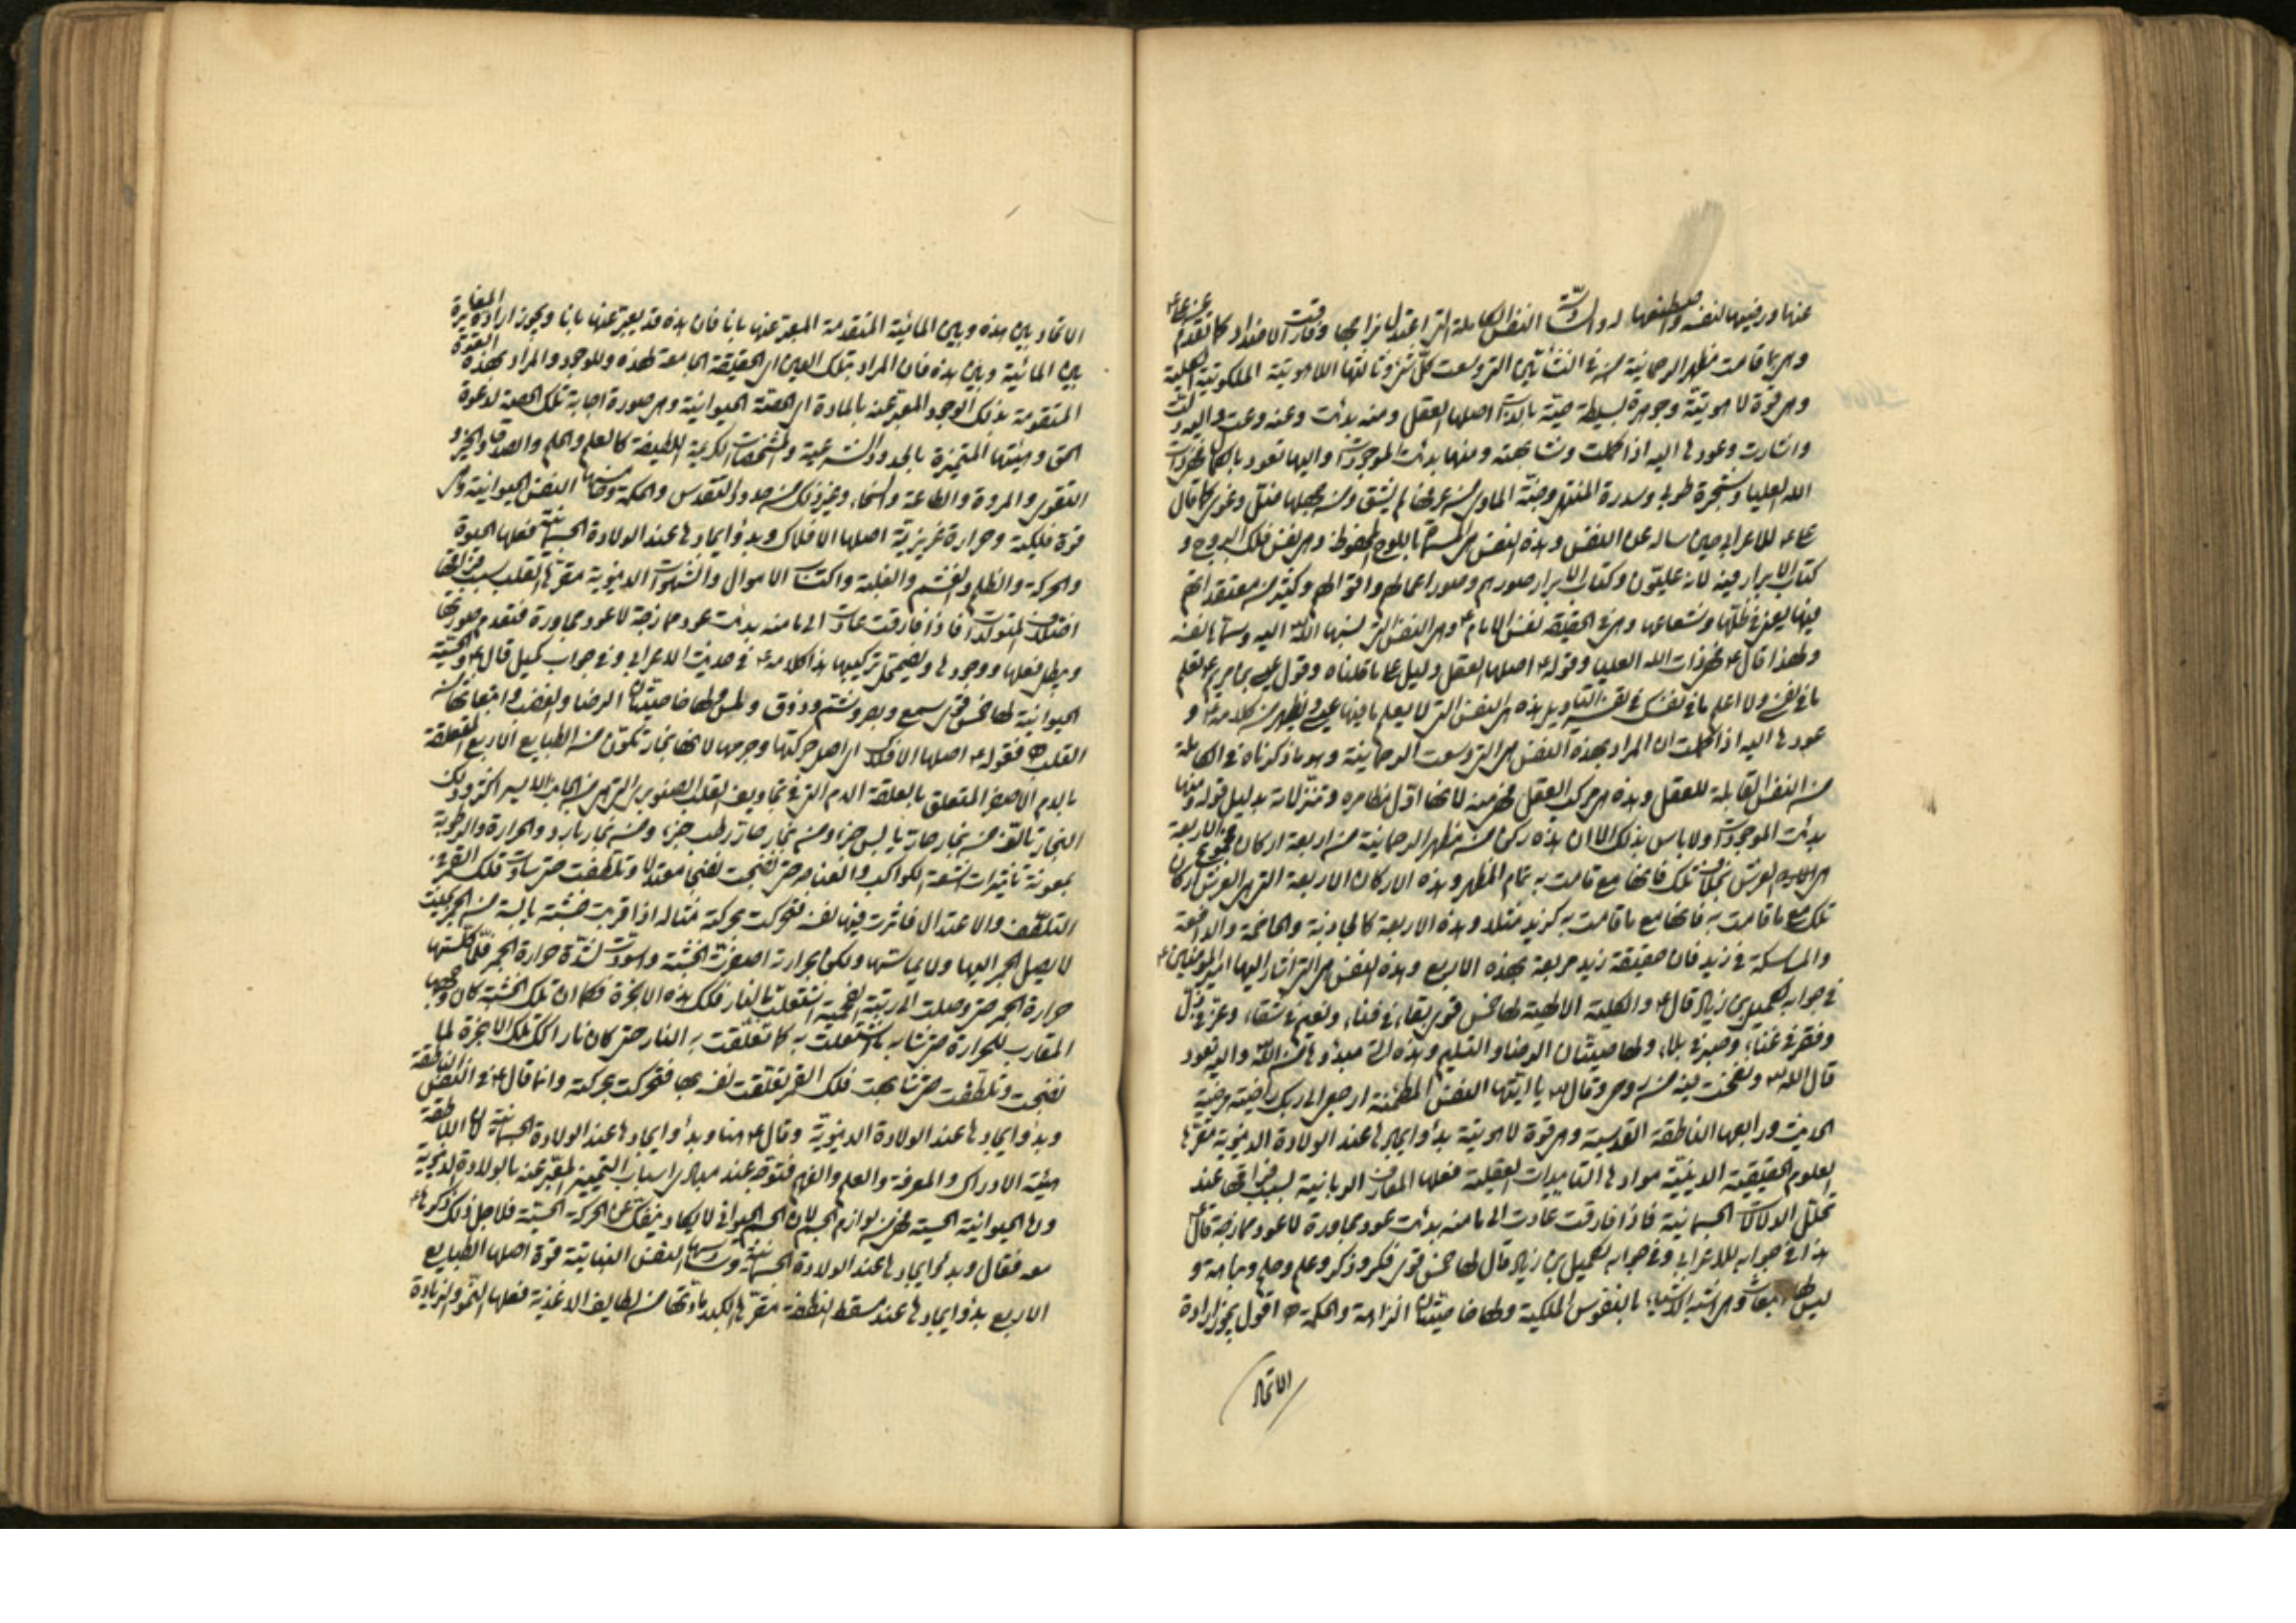 عنها ورضيها لنفسه واصطنعها له والثانية النفس الكاملة التي اعتدل مزاجها وفارقت الاضداد كما تقدم
وهي بما قامت مظهر الرحمانية في النشأتين التي وسعت كل شيء وثالثتها اللاهوتية الملكوتية الكلية
وهي قوة لاهوتية وجوهرة بسيطة حية بالذات اصلها العقل ومنه بدئت وعنه وعت واليه دلت
واشارت وعودها اليه اذا كملت وشابهته ومنها بدئت الموجودات واليها تعود بالكمال فهي ذات
الله العليا وشجرة طوبى وسدرة المنتهى وجنة الماوى من عرفها لم يشق ومن جهلها ضل وغوى كما قال
للاعرابي حين ساله عن النفس وهذه النفس هي المسماة باللوح المحفوظ وهي نفس فلك البروج و
كتاب الابرار فيه لانه عليّون وكتاب الابرار صورهم وصور اعمالهم واقوالهم وكثير من معتقداتهم
فيها يعني في ظلها وشعاعها وهي في الحقيقة نفس الامام ع وهي النفس التي نسبها الله اليه وسماها نفسه
ولهذا قال ع فهي ذات الله العليا وقوله ع اصلها العقل دليل على ما قلناه وقول عيسى بن مريم ع تعلم
ما في نفسي ولا اعلم ما في نفسك في تفسير التاويل هذه هي النفس التي لا يعلم ما فيها عيسى ويظهر من كلامه ع و
عودها اليه اذا كملت ان المراد بهذه النفس هي التي وسعت الرحمانية وهو ما ذكرناه في الكاملة
من النفس القابلة للعقل وهذه هي مركب العقل فهي منه لانها اول مظاهره وتنزلاته بدليل قوله ومنها
بدئت الموجودات ولا باس بذلك الا ان هذه ركن من مظهر الرحمانية من اربعة اركان مجموع الاربعة
هي العرش بخلاف تلك فانها مع قامت به تمام المظهر وهذه الاركان الاربعة التي هي العرش اركان
تلك مع ما قامت به فانها مع ما قامت به كزيد مثلا وهذه الاربعة كالجاذبة والهاضمة والدافعة
والماسكة في زيد فان حقيقة زيد مربعة بهذه الاربع وهذه النفس هي التي اشار اليها امير المؤمنين ع
في جوابه لكميل بن زياد قال ع والكلية الالهية لها خمس قوى بقاء في فناء ونعيم في شقاء وعز في ذل
وفقر في غناء وصبر في بلاء ولها خاصيتان الرضا والتسليم وهذه التي مبدؤها من الله واليه تعود
قال الله تع ونفخت فيه من روحي وقال تع يا ايتها النفس المطمئنة ارجعي الى ربك راضية مرضية
الحديث ورابعها الناطقة القدسية وهي قوة لاهوتية بدؤ ايجادها عند الولادة الدنيوية مقرها
العلوم الحقيقية الدينية موادها التاييدات العقلية فعلها المعارف الربانية سبب فراقها عند
تحلل الالات الجسمانية فاذا فارقت عادت الى ما منه بدئت عود مجاورة لا عود ممازجة قال ع
هذا في جوابه للاعرابي وفي جوابه لكميل بن زياد قال لها خمس قوى فكر وذكر وعلم وحلم ونباهة و
ليس لها انبعاث وهي اشبه الاشياء بالنفوس الملكية ولها خاصيتان النزاهة والحكمة ه اقول يجوز ارادة
الاتحاد
الاتحاد بين هذه وبين المائية المتقدمة المعبر عنها بانا فان هذه قد يعبر عنها بانا ويجوز ارادة المغايرة
بين المائية وبين هذه فان المراد بتلك العين اي الحقيقة الجامعة لهذه وللوجود والمراد بهذه القوة
المتقومة بذلك الوجود المعبر عنه بالمادة اي الحصة الحيوانية وهي صورة اجابة تلك الحصة لدعوة
الحق وهيئتها المتميزة بالحدود الشرعية والمشخصات الكريمة اللطيفة كالعلم والحلم والصدق والخير و
التقوى والمروة والطاعة والسخاء وغير ذلك من حدود القدس والحكمة وخامسها النفس الحيوانية وهي
قوة فلكية وحرارة غريزية اصلها الافلاك وبدؤ ايجادها عند الولادة الجسمانية فعلها الحيوة
والحركة والظلم والغشم والغلبة واكتساب الاموال والشهوات الدنيوية مقرها القلب سبب فراقها
اختلاف المتولدات فاذا فارقت عادت الى ما منه بدئت عود ممازجة لا عود مجاورة فتعدم صورتها
ويبطل فعلها ووجودها ويضمحل تركيبها هذا كلامه ع في حديث الاعرابي وفي جواب كميل قال ع والحسية
الحيوانية لها خمس قوى سمع وبصر وشم وذوق ولمس ولها خاصيتان الرضا والغضب وانبعاثها من
القلب ه فقوله ع اصلها الافلاك اي اصل حركتها وجرمها لانها بخار تكون من الطبايع الاربع المتعلقة
بالدم الاصفر المتعلق بالعلقة الدم التي في تجاويف القلب الصنوبري التي من الجانب الايسر اكثر وذلك
البخار تالف من بخار حار يابس جزء ومن بخار حار رطب جزء ومن بخار بارد والحرارة والرطوبة
بمعونة تاثيرات اشعة الكواكب والعناصر حتى نضجت نضجا معتدلا وتلطفت حتى ساوت فلك القمر في
التلطف والاعتدال فاثرت فيها نفسه فتحركت بحركته مثاله اذا قربت خشبة يابسة من الجمر بحيث
لا يصل الجمر اليها ولا يماسها ولكن بحرارته اصفرت الخشبة واسودت لشدة حرارة الجمر فلما كلستها
حرارة الجمر حتى وصلت الى رتبة الفحمية اشتعلت بالنار فلك هذه الابخرة فكما ان تلك الخشبة كان وجهها
المقارب للحرارة حتى شابه ما اشتعلت به كما تعلقت به النار حتى كان نارا كذلك تلك الابخرة لما
نضجت وتلطفت حتى شابهت فلك القمر تعلقت نفسه بها فتحركت بحركته وانما قال ع في النفس الناطقة
وبدؤ ايجادها عند الولادة الدنيوية وقال ع هنا وبدؤ ايجادها عند الولادة الجسمانية لان الناطقة
هيئة الادراك والمعرفة والعلم والفهم فتوجد عند مبادي اسباب التمييز المعبر عنه بالولادة الدنيوية
واما الحيوانية الحسية فهي من لوازم الجسم لان الجسم الحيواني لا يكاد ينفك عن الحركة الحسية فلاجل ذلك ذكرها
معه فقال وبدؤ ايجادها عند الولادة الجسمانية وسادسها النفس النباتية قوة اصلها الطبايع
الاربع بدؤ ايجادها عند مسقط النطفة مقرها الكبد مادتها من لطايف الاغذية فعلها النمو والزيادة